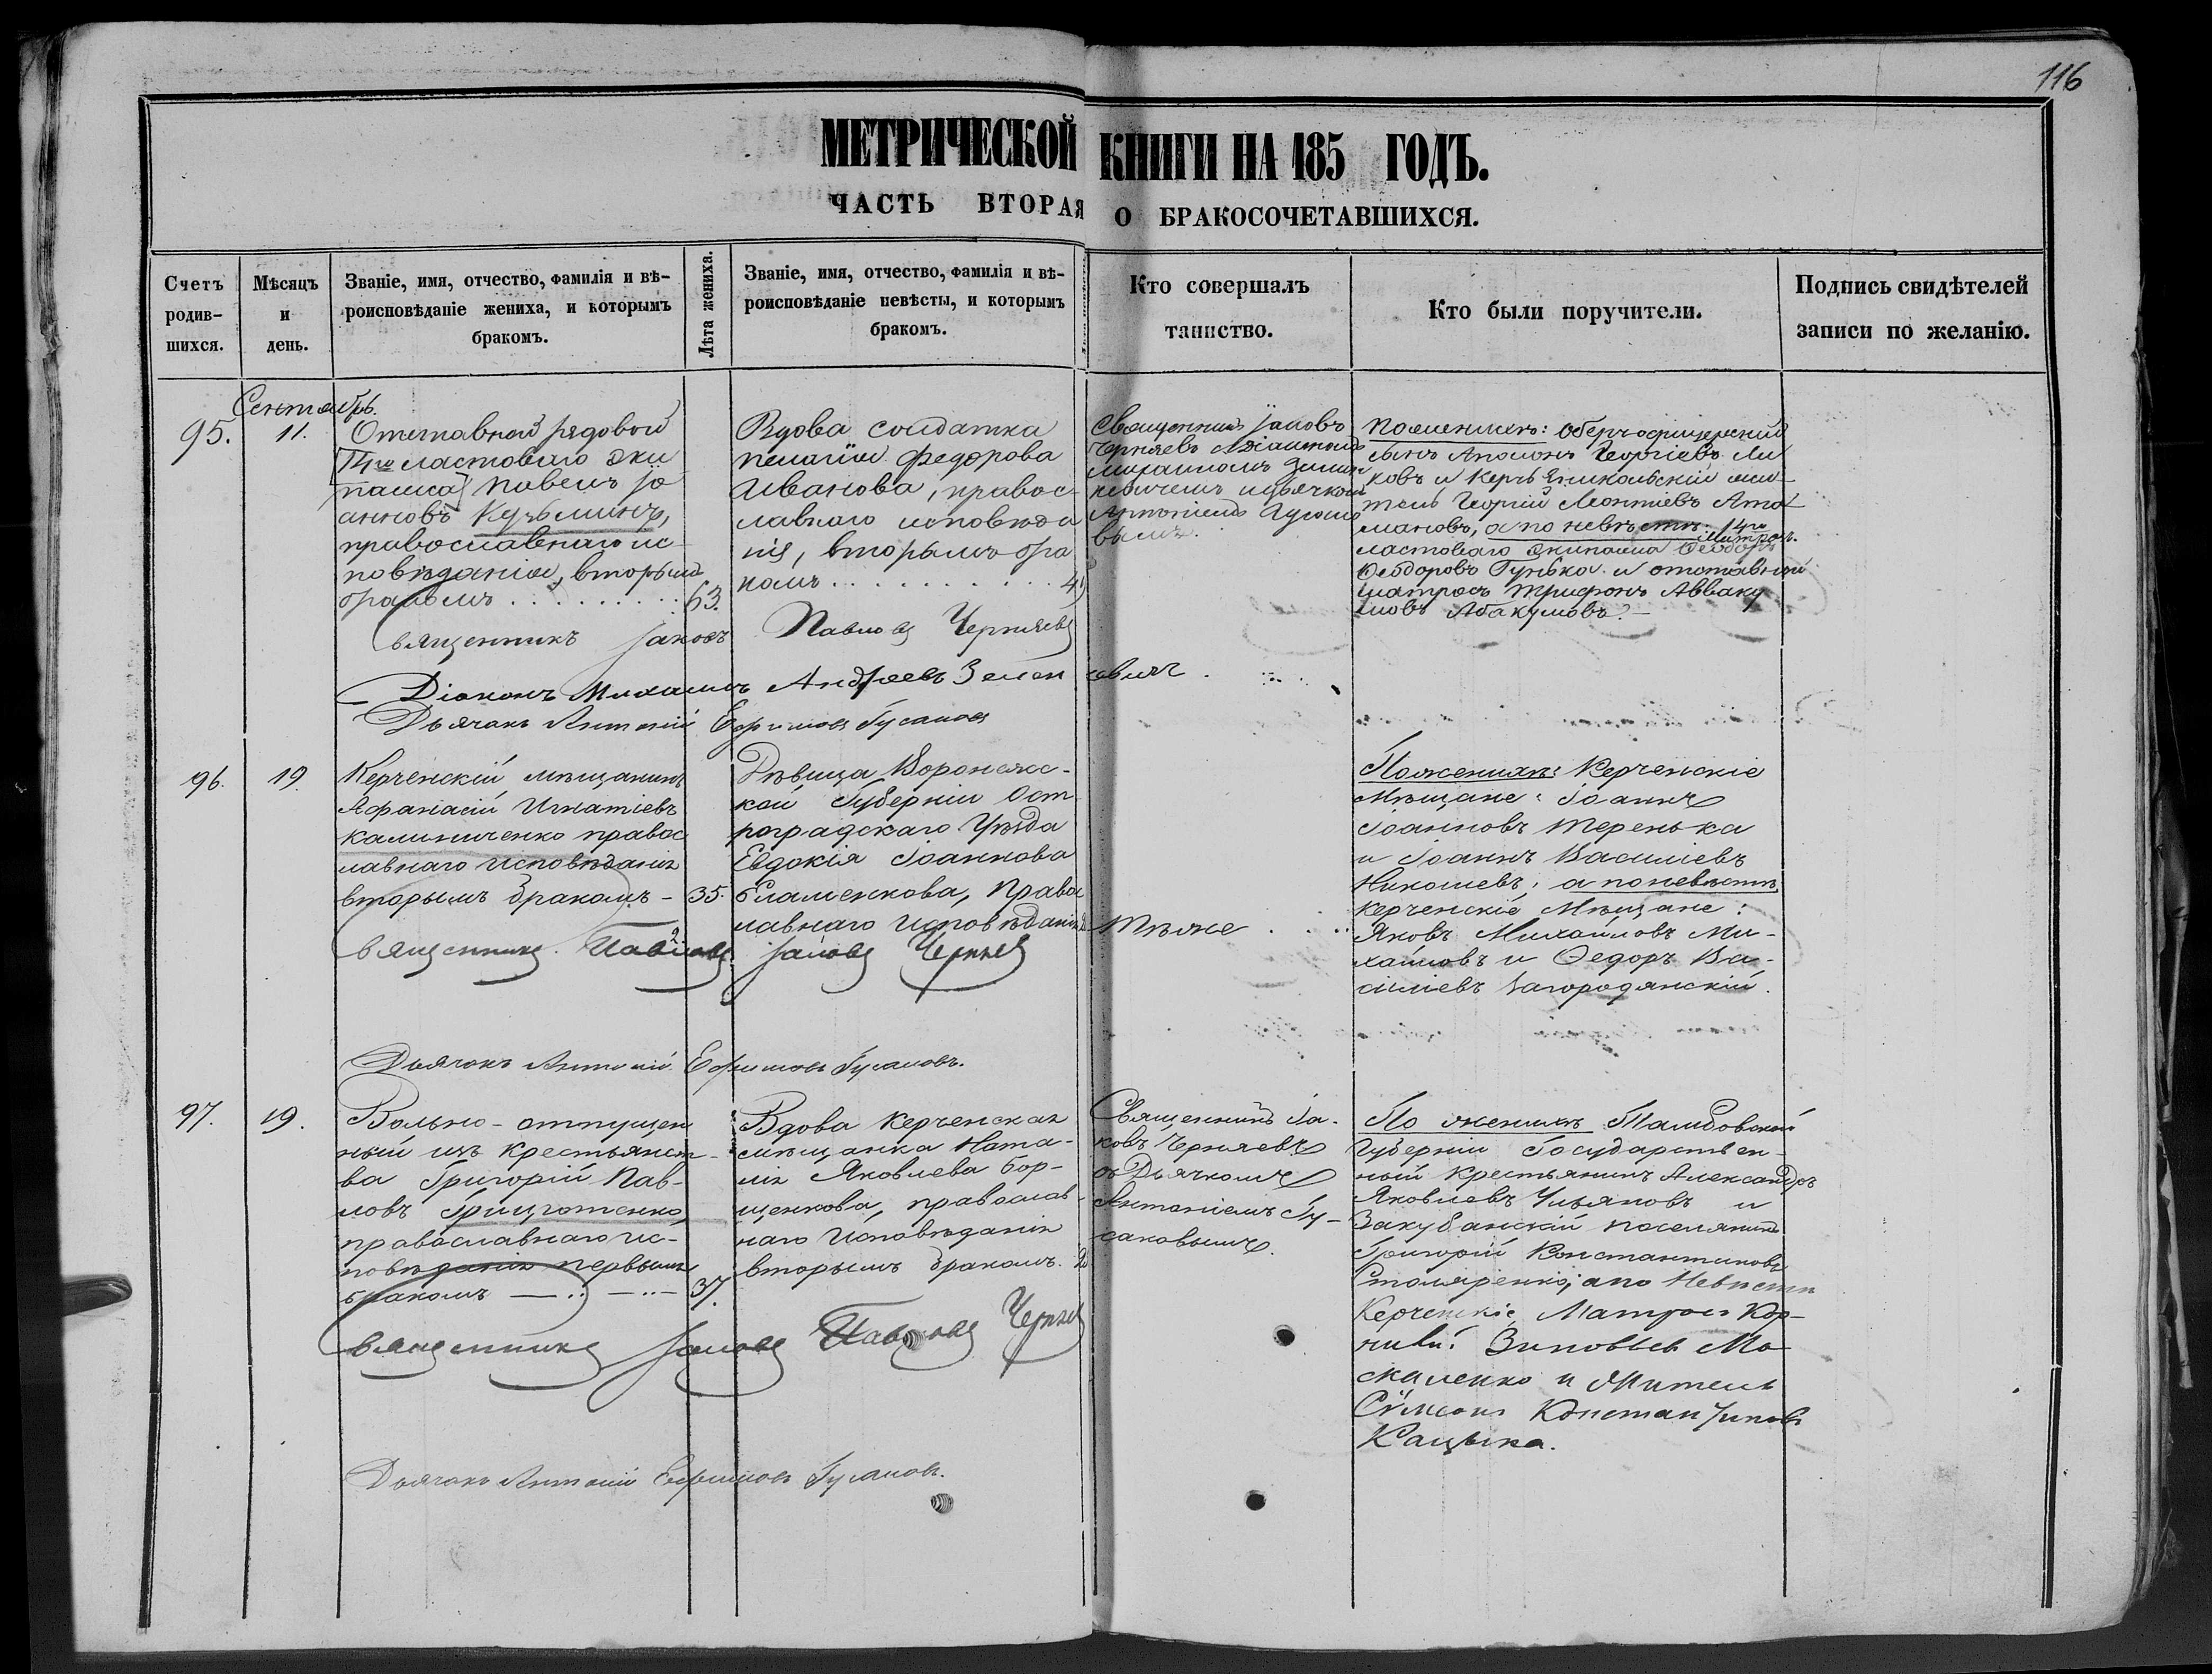 116
МЕТРИЧЕСКОЙ КНИГИ НА 185 ГОДЪ.
ЧАСТЬ ВТОРАЯ О БРАКОСОЧЕТАВШИХСЯ.
Счетъ
родив-
шихся.
Мѣсяцъ
и
день.
Званіе, имя, отчество, фамилія и вѣ-
роисповѣданіе жениха, и которымъ
бракомъ.
Лѣта жениха.
Званіе, имя, отчество, фамилія и вѣ-
роисповѣданіе невѣсты, и которымъ
бракомъ.
Кто совершалъ
таинство.
Кто были поручители.
Подпись свидѣтелей
записи по желанію.
Сентябрь.
95.
11.
Отставной рядовой
14го ластоваго эки
пажа Павелъ Іо
анновъ Кузьминъ,
православнаго ис
повѣданія, вторымъ
бракомъ . . . . . . . . .
63.
Вдова солдатка
Пелагія Федорова
Иванова, правос-
лавнаго исповѣда
нія, вторымъ бра
комъ . . . . . . . . . .
Священникъ Іаковъ
Черняевъ
Поженихѣ: Оберъ-офицерский
сынъ Георгіевъ
и Керчь Еникольскій жи-
тель Георгій Леонтіевъ
а по невѣстѣ: 14го
ластоваго экипажа матрос.
Феодоровъ Гунька и отставной
матросъ Трифонъ Авваку
мовъ Абакумовъ. —
Священникъ Іаковъ Павловъ Черняевъ
Діаконъ Михаилъ Андреевъ
Дьячокъ Антоній Ефимовъ Гусаковъ
96.
19.
Керченскій мѣщанинъ
Афанасій Игнатіевъ
Калиниченко правос
лавнаго исповѣданія
вторымъ бракомъ -
35.
Дѣвица Воронежс-
кой Губерніи Ост
рогradскаго Уѣзда
Евдокія Іоаннова
Еламенкова, Правос
лавнаго исповѣданія
Тѣже . . .
Поженихѣ: Керченскіе
Мѣщане: Іоаннъ
Іоанновъ Теренька
и Іоаннъ Василіевъ
Николаевъ; а по невѣстѣ,
Керченскіе Мѣщане:
Яковъ Михайловъ Ми-
хайловъ и Ѳедоръ Ва-
силіевъ Загородянскій.
Священникъ Павловъ Іаковъ Черняевъ
Дьячокъ Антоній Ефимовъ Гусаковъ.
97.
19.
Вольно-отпущен
ный изъ крестьянст-
ва Григорій Пав-
ловъ Грищотенко,
православнаго ис-
повѣданія первымъ
бракомъ
37.
Вдова Керченская
мѣщанка Ната-
лія Яковлева Бор-
щенкова, православ-
наго исповѣданія
вторымъ бракомъ.
Священникъ Іа-
ковъ Черняевъ
съ Дьячкомъ
Антоніемъ Гу-
саковымъ.
По женихѣ Тамбовской
Губерніи Государствен-
ный крестьянинъ Александръ
Яковлевъ Ульяновъ и
Закубанскій поселянинъ
Григорій Константиновъ
Столяренко; а по Невѣстѣ
Керченскіе Матросъ Кор-
нилій Зиновьевъ Мо
скаленко и Житель
Сѵмеонъ Константиновъ
Кацыка.
Священникъ Іаковъ Павловъ Черняевъ
Дьячокъ Антоній Ефимовъ Гусаковъ.